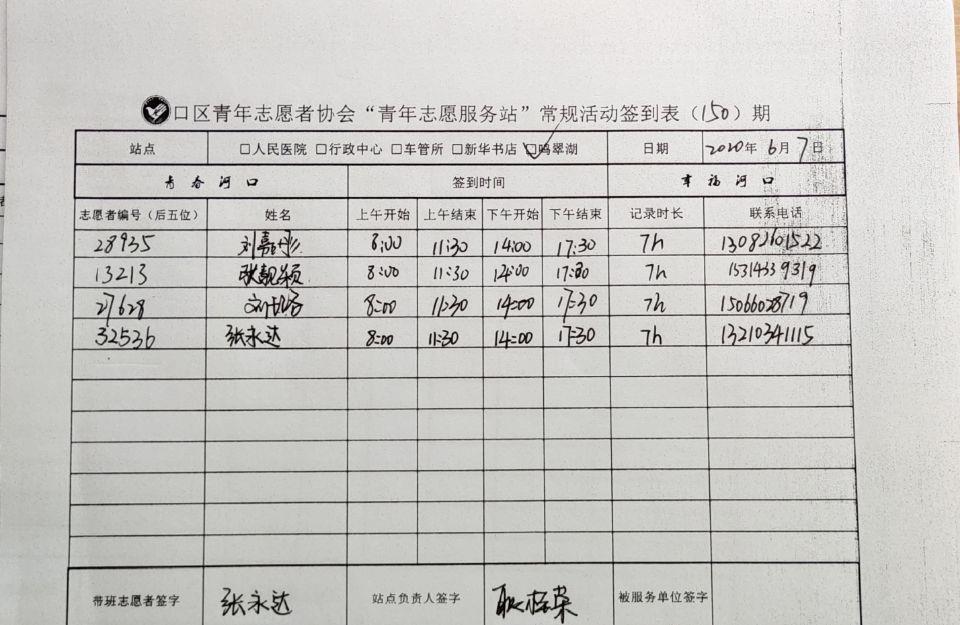 口区青年志愿者协会“青年志愿服务站”常规活动签到表（150）期
站点 □人民医院 □行政中心 □车管所 □新华书店 ☑鸣翠湖 日期 2020年 6月 7日
青春河口 签到时间 幸福河口
志愿者编号（后五位） 姓名 上午开始 上午结束 下午开始 下午结束 记录时长 联系电话
28935 刘嘉彤 8:00 11:30 14:00 17:30 7h 13082601522
13213 8:00 11:30 14:00 17:30 7h 15314339319
27628 刘 8:00 11:30 14:00 17:30 7h 15066028719
32536 张永达 8:00 11:30 14:00 17:30 7h 13210341115
带班志愿者签字 张永达 站点负责人签字 被服务单位签字